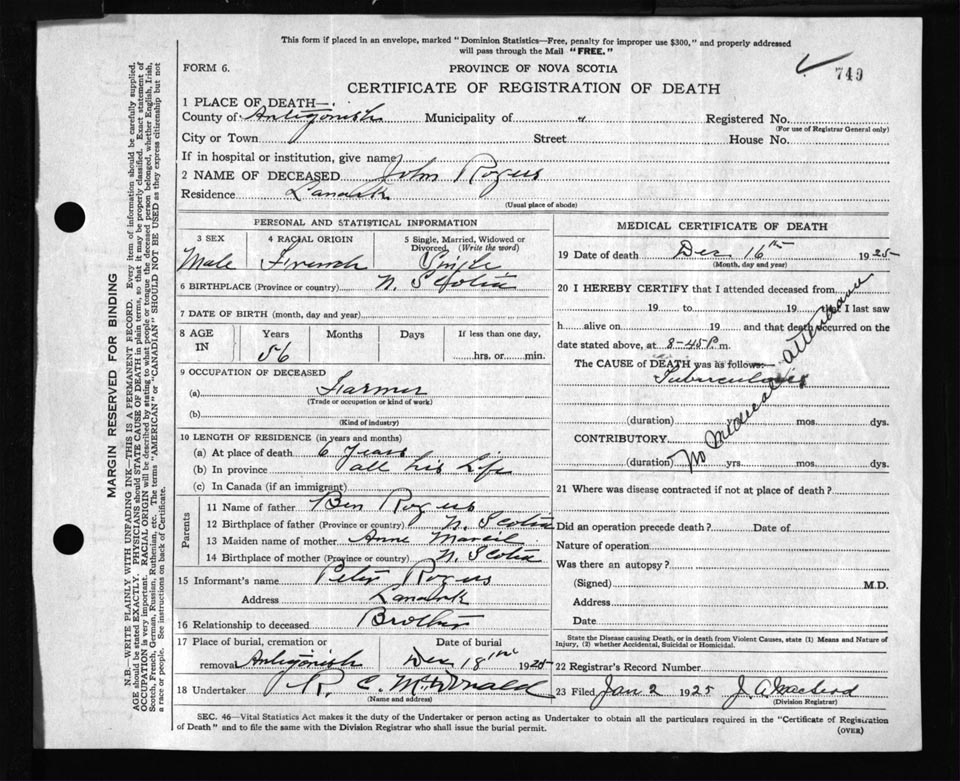 This form if placed in an envelope, marked "Dominion Statistics—Free, penalty for improper use $300," and properly addressed
will pass through the Mail "FREE."
749
FORM 6.
PROVINCE OF NOVA SCOTIA
CERTIFICATE OF REGISTRATION OF DEATH
1 PLACE OF DEATH—
County of Antigonish Municipality of " Registered No.
(For use of Registrar General only)
City or Town Street House No.
If in hospital or institution, give name
2 NAME OF DECEASED John Rogers
Residence Lanark
(Usual place of abode)
PERSONAL AND STATISTICAL INFORMATION
3 SEX 4 RACIAL ORIGIN 5 Single, Married, Widowed or
Divorced, (Write the word)
Male French Single
6 BIRTHPLACE (Province or country) N. Scotia
7 DATE OF BIRTH (month, day and year)
8 AGE Years Months Days If less than one day,
IN 56 hrs. or min.
9 OCCUPATION OF DECEASED
(a) Farmer
(Trade or occupation or kind of work)
(b)
(Kind of industry)
10 LENGTH OF RESIDENCE (in years and months)
(a) At place of death 6 Years
(b) In province all his Life
(c) In Canada (if an immigrant)
Parents
11 Name of father Ben Rogers
12 Birthplace of father (Province or country) N. Scotia
13 Maiden name of mother Anne
14 Birthplace of mother (Province or country) N. Scotia
15 Informant's name Peter Rogers
Address Lanark
16 Relationship to deceased Brother
17 Place of burial, cremation or Date of burial
removal Antigonish Dec 18th 1925
18 Undertaker R. C. McDonald
(Name and address)
MEDICAL CERTIFICATE OF DEATH
19 Date of death Dec. 16th 1925
(Month, day and year)
20 I HEREBY CERTIFY that I attended deceased from
19 to 19 that I last saw
h alive on 19 and that death occurred on the
date stated above, at 8-45 P. m.
The CAUSE of DEATH was as follows:—
Tuberculosis
No Medical attendance
(duration) mos. dys.
CONTRIBUTORY
(duration) yrs. mos. dys.
21 Where was disease contracted if not at place of death?
Did an operation precede death? Date of
Nature of operation
Was there an autopsy?
(Signed) M.D.
Address
Date
State the Disease causing Death, or in death from Violent Causes, state (1) Means and Nature of
Injury, (2) whether Accidental, Suicidal or Homicidal.
22 Registrar's Record Number
23 Filed Jan 2 1925 J. A. MacLeod
(Division Registrar)
SEC. 46—Vital Statistics Act makes it the duty of the Undertaker or person acting as Undertaker to obtain all the particulars required in the "Certificate of Registration
of Death" and to file the same with the Division Registrar who shall issue the burial permit.
(OVER)
MARGIN RESERVED FOR BINDING
N.B.—WRITE PLAINLY WITH UNFADING INK—THIS IS A PERMANENT RECORD. Every item of information should be carefully supplied.
AGE should be stated EXACTLY. PHYSICIANS should STATE CAUSE OF DEATH in plain terms, so that it may be properly classified. Exact statement of
OCCUPATION is very important. RACIAL ORIGIN will be described by stating to what people or tongue the deceased person belonged, whether English, Irish,
Scotch, French, German, Russian, Ruthenian, etc. The terms "AMERICAN" or "CANADIAN" SHOULD NOT BE USED as they express citizenship but not
a race or people. See instructions on back of Certificate.